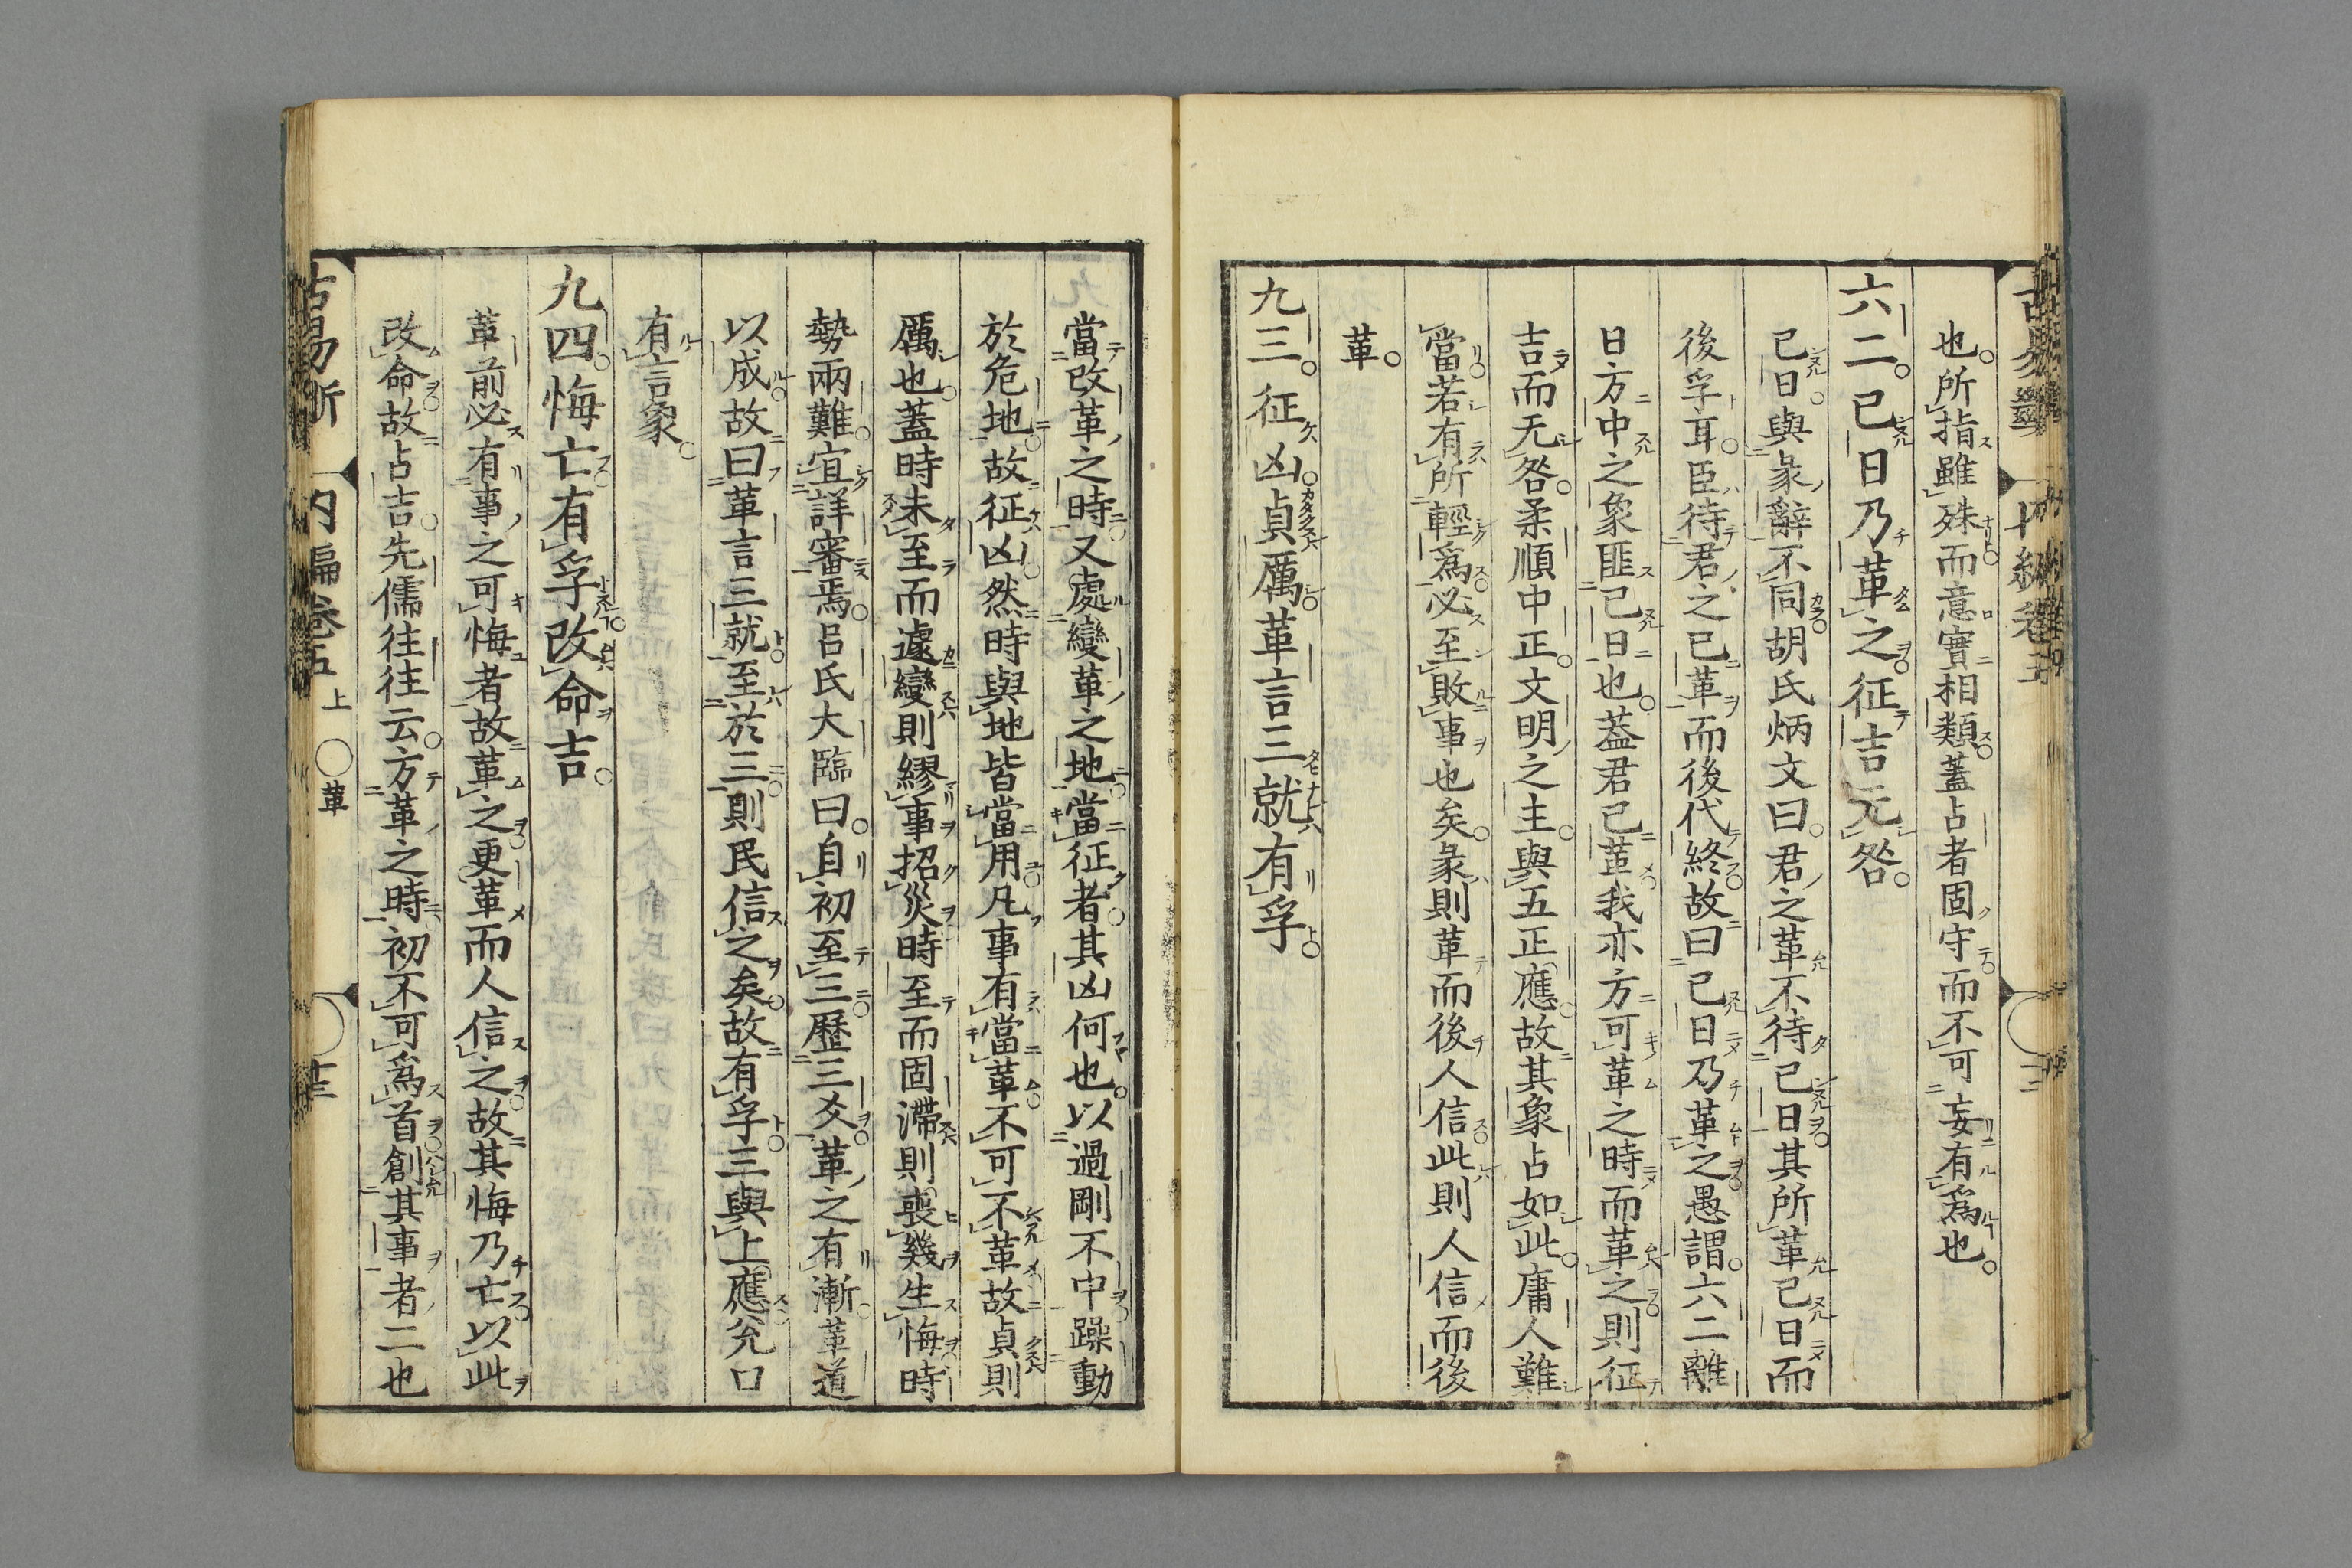 也所指雖殊而意實相類蓋占者固守而不可妄有爲也
六二已日乃革之征吉无咎
已日與彖辭不同胡氏炳文曰君之革不待已日其所革已日而
後孚耳臣待君之已革而後代終故曰已日乃革之愚謂六二離
日方中之象匪已日也蓋君已革我亦方可革之時而革之則征
吉而无咎柔順中正文明之主與五正應故其象占如此庸人難
當若有所輕爲必至敗事也矣彖則革而後人信此則人信而後
革
九三征凶貞厲革言三就有孚
當改革之時又處變革之地當征者其凶何也以過剛不中躁動
於危地故征凶然時與地皆當用凡事有當革不可不革故貞則
厲也蓋時未至而遽變則繆事招災時至而固滯則喪幾生悔時
勢兩難宜詳審焉呂氏大臨曰自初至三歷三爻革之有漸革道
以成故曰革言三就至於三則民信之矣故有孚三與上應兌口
有言象
九四悔亡有孚改命吉
革前必有事之可悔者故革之更革而人信之故其悔乃亡以此
改命故占吉先儒往往云方革之時初不可爲首創其事者二也
古易斷 內編卷五 上 ○革 十三